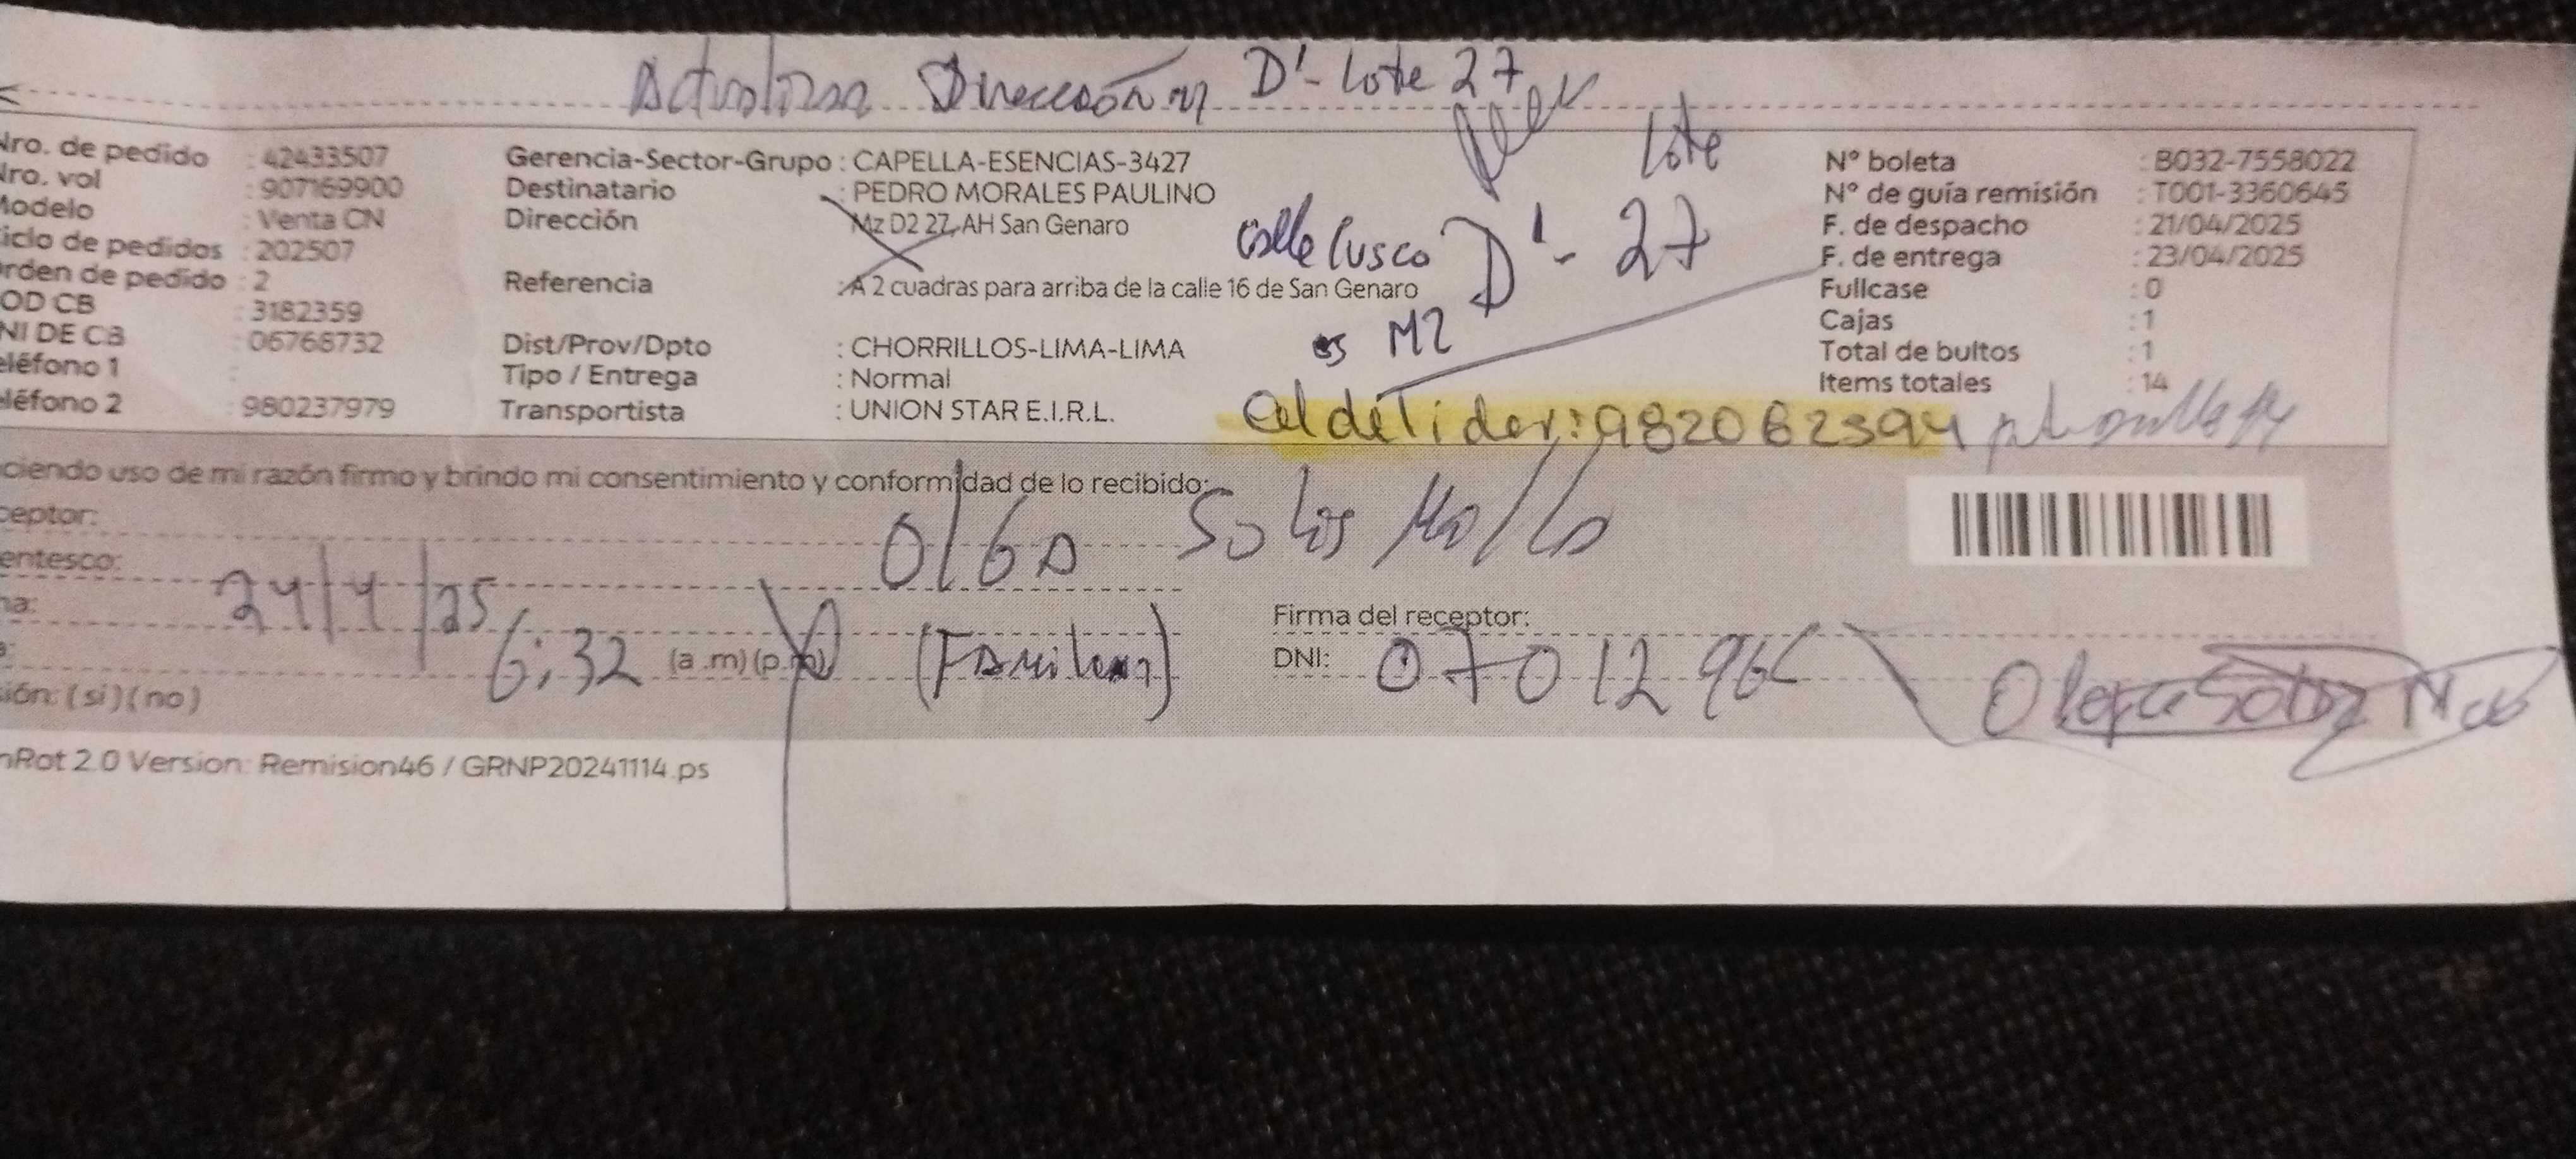 Actualizar Dirección Mz D'- Lote 27
Nro. de pedido : 42433507
Nro. vol : 907169900
Modelo : Venta CN
iclo de pedidos : 202507
rden de pedido : 2
OD CB : 3182359
NI DE CB : 06768732
eléfono 1 :
eléfono 2 : 980237979
Gerencia-Sector-Grupo : CAPELLA-ESENCIAS-3427
Destinatario : PEDRO MORALES PAULINO
Dirección : Mz D2 27, AH San Genaro
Referencia : A 2 cuadras para arriba de la calle 16 de San Genaro
Dist/Prov/Dpto : CHORRILLOS-LIMA-LIMA
Tipo / Entrega : Normal
Transportista : UNION STAR E.I.R.L.
Lote
Calle Cusco D'- 27
es MZ
N° boleta : B032-7558022
N° de guía remisión : T001-3360645
F. de despacho : 21/04/2025
F. de entrega : 23/04/2025
Fullcase : 0
Cajas : 1
Total de bultos : 1
Items totales : 14
Cel de Tider: 982062394
ciendo uso de mi razón firmo y brindo mi consentimiento y conformidad de lo recibido:
ceptor: Olga Solis Mollo
entesco: (Familiar)
ha: 24/4/25
a: 6:32 (a.m) (p.m)
sión: (si) (no)
Firma del receptor:
DNI: 0701296
nRot 2.0 Version: Remision46 / GRNP20241114.ps